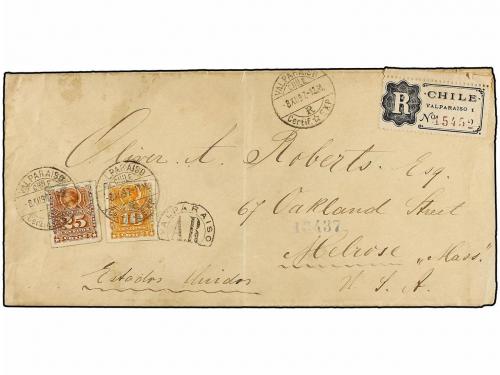 VALPARAISO
CHILE
R
Certif. EXP
R
CHILE
VALPARAISO 1
No. 15452
Oliver A. Roberts, Esq.
VALPARAISO
VALPARAISO
25
10
VALPARAISO
67 Oakland Street
13437
Melrose "Mass."
Estados Unidos
U. S. A.